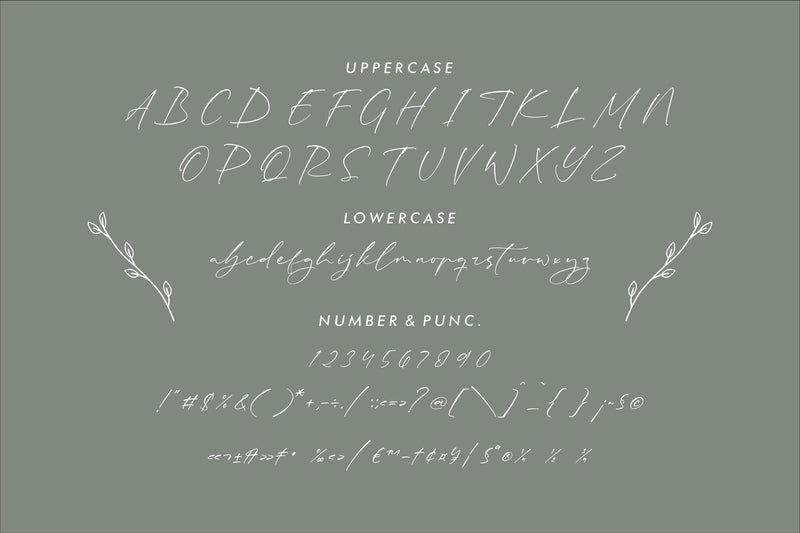 UPPERCASE
A B C D E F G H I J K L M N
O P Q R S T U V W X Y Z
LOWERCASE
abcdefghijklmnopqrstuvwxyz
NUMBER & PUNC.
1 2 3 4 5 6 7 8 9 0
! " # $ % & ( ) * + , - ÷ . / : ; < = > ? @ [ \ ] ^ _ ` { } ¡ ~ § ©